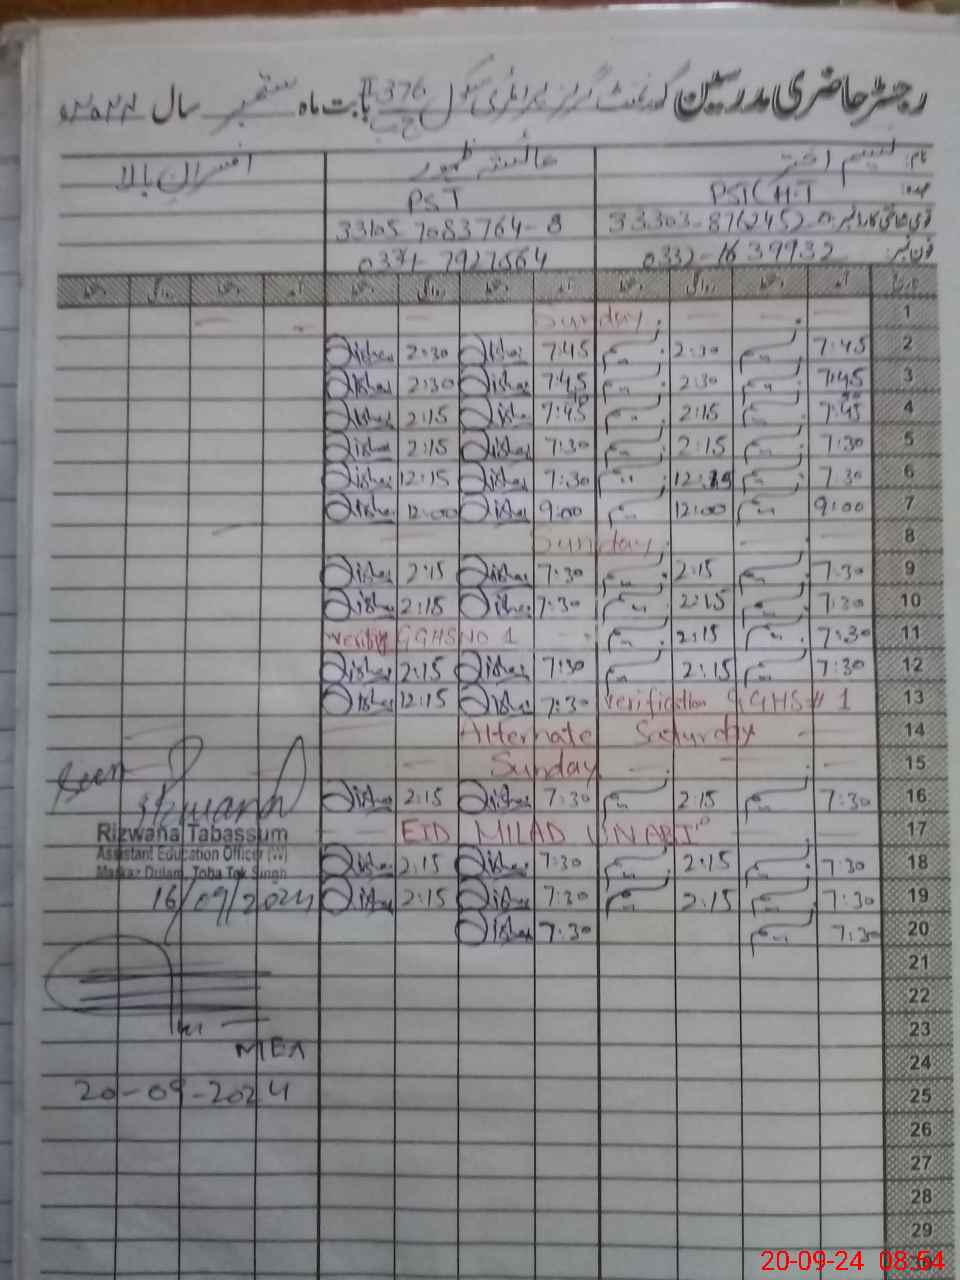 رجسٹر حاضری مدرسین گورنمنٹ گرلز پرائمری سکول 376 ج ب بابت ماہ ستمبر سال ۲۰۲۴
نام: نسیم اختر عائشہ ظہور افسران بالا
عہدہ: PST(H.T PST
قومی شناختی کارڈ نمبر: 33105 7083764-8
فون نمبر: 0332-1639932 0331-7927564
تاریخ آمد دستخط روانگی دستخط آمد دستخط روانگی دستخط آمد دستخط روانگی دستخط
Sunday 1
Aisha 2:30 Aisha 7:45 2:30 7:45 2
Aisha 2:30 Aisha 7:45 2:30 7:45 3
Aisha 2:15 Aisha 7:45 2:15 7:45 4
Aisha 2:15 Aisha 7:30 2:15 7:30 5
Aisha 12:15 Aisha 7:30 12:15 7:30 6
Aisha 12:00 Aisha 9:00 12:00 9:00 7
Sunday 8
Aisha 2:15 Aisha 7:30 2:15 7:30 9
Aisha 2:15 Aisha 7:30 2:15 7:30 10
GGHS NO 1 2:15 7:30 11
Aisha 2:15 Aisha 7:30 2:15 7:30 12
Aisha 12:15 Aisha 7:30 verification GGHS # 1 13
Alternate Saturday 14
Sunday 15
Seen
Aisha 2:15 Aisha 7:30 2:15 7:30 16
Rizwana Tabassum
EID MILAD UN ABI 17
Assistant Education Officer (W)
Markaz Dulam, Toba Tek Singh
Aisha 2:15 Aisha 7:30 2:15 7:30 18
16/09/2024 Aisha 2:15 Aisha 7:30 2:15 7:30 19
Aisha 7:30 7:30 20
21
22
23
MEA
24
20-09-2024 25
26
27
28
29
20-09-24 08:54